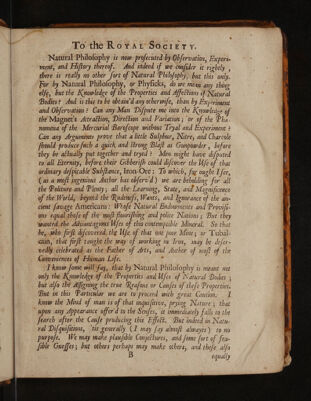 To the ROYAL SOCIETY.
Natural Philosophy is now prosecuted by Observation, Experi-
ment, and History thereof. And indeed if we consider it rightly,
there is really no other sort of Natural Philosophy, but this only.
For by Natural Philosophy, or Physicks, do we mean any thing
else, but the Knowledge of the Properties and Affections of Natural
Bodies? And is this to be obtain'd any otherwise, than by Experiment
and Observation? Can any Man Dispute me into the Knowledge of
the Magnet's Attraction, Direction and Variation; or of the Phæ-
nomena of the Mercurial Baroscope without Tryal and Experiment?
Can any Arguments prove that a little Sulphur, Nitre, and Charcole
should produce such a quick and strong Blast as Gunpowder, before
they be actually put together and tryed? Men might have disputed
to all Eternity, before their Gibberish could discover the Use of that
ordinary despicable Substance, Iron-Ore: To which, for ought I see,
(as a most ingenious Author has observ'd) we are beholding for all
the Politure and Plenty; all the Learning, State, and Magnificence
of the World, beyond the Rudeness, Wants, and Ignorance of the an-
cient savage Americans: Whose Natural Endowments and Provisi-
ons equal those of the most flourishing and polite Nations; But they
wanted the Advantagious Uses of this contemptible Mineral. So that
he, who first discovered the Use of that one poor Mine; or Tubal-
cain, that first taught the way of working in Iron, may be deser-
vedly celebrated as the Father of Arts, and Author of most of the
Conveniences of Human Life.
I know some will say, that by Natural Philosophy is meant not
only the Knowledge of the Properties and Uses of Natural Bodies;
but also the Assigning the true Reasons or Causes of these Properties.
But in this Particular we are to proceed with great Caution. I
know the Mind of man is of that inquisitive, prying Nature; that
upon any Appearance offer'd to the Senses, it immediately falls to the
search after the Cause producing this Effect. But indeed in Natu-
ral Disquisitions, 'tis generally (I may say almost always) to no
purpose. We may make plausible Conjectures, and some sort of fea-
sible Guesses; but others perhaps may make others, and these also
B
equally